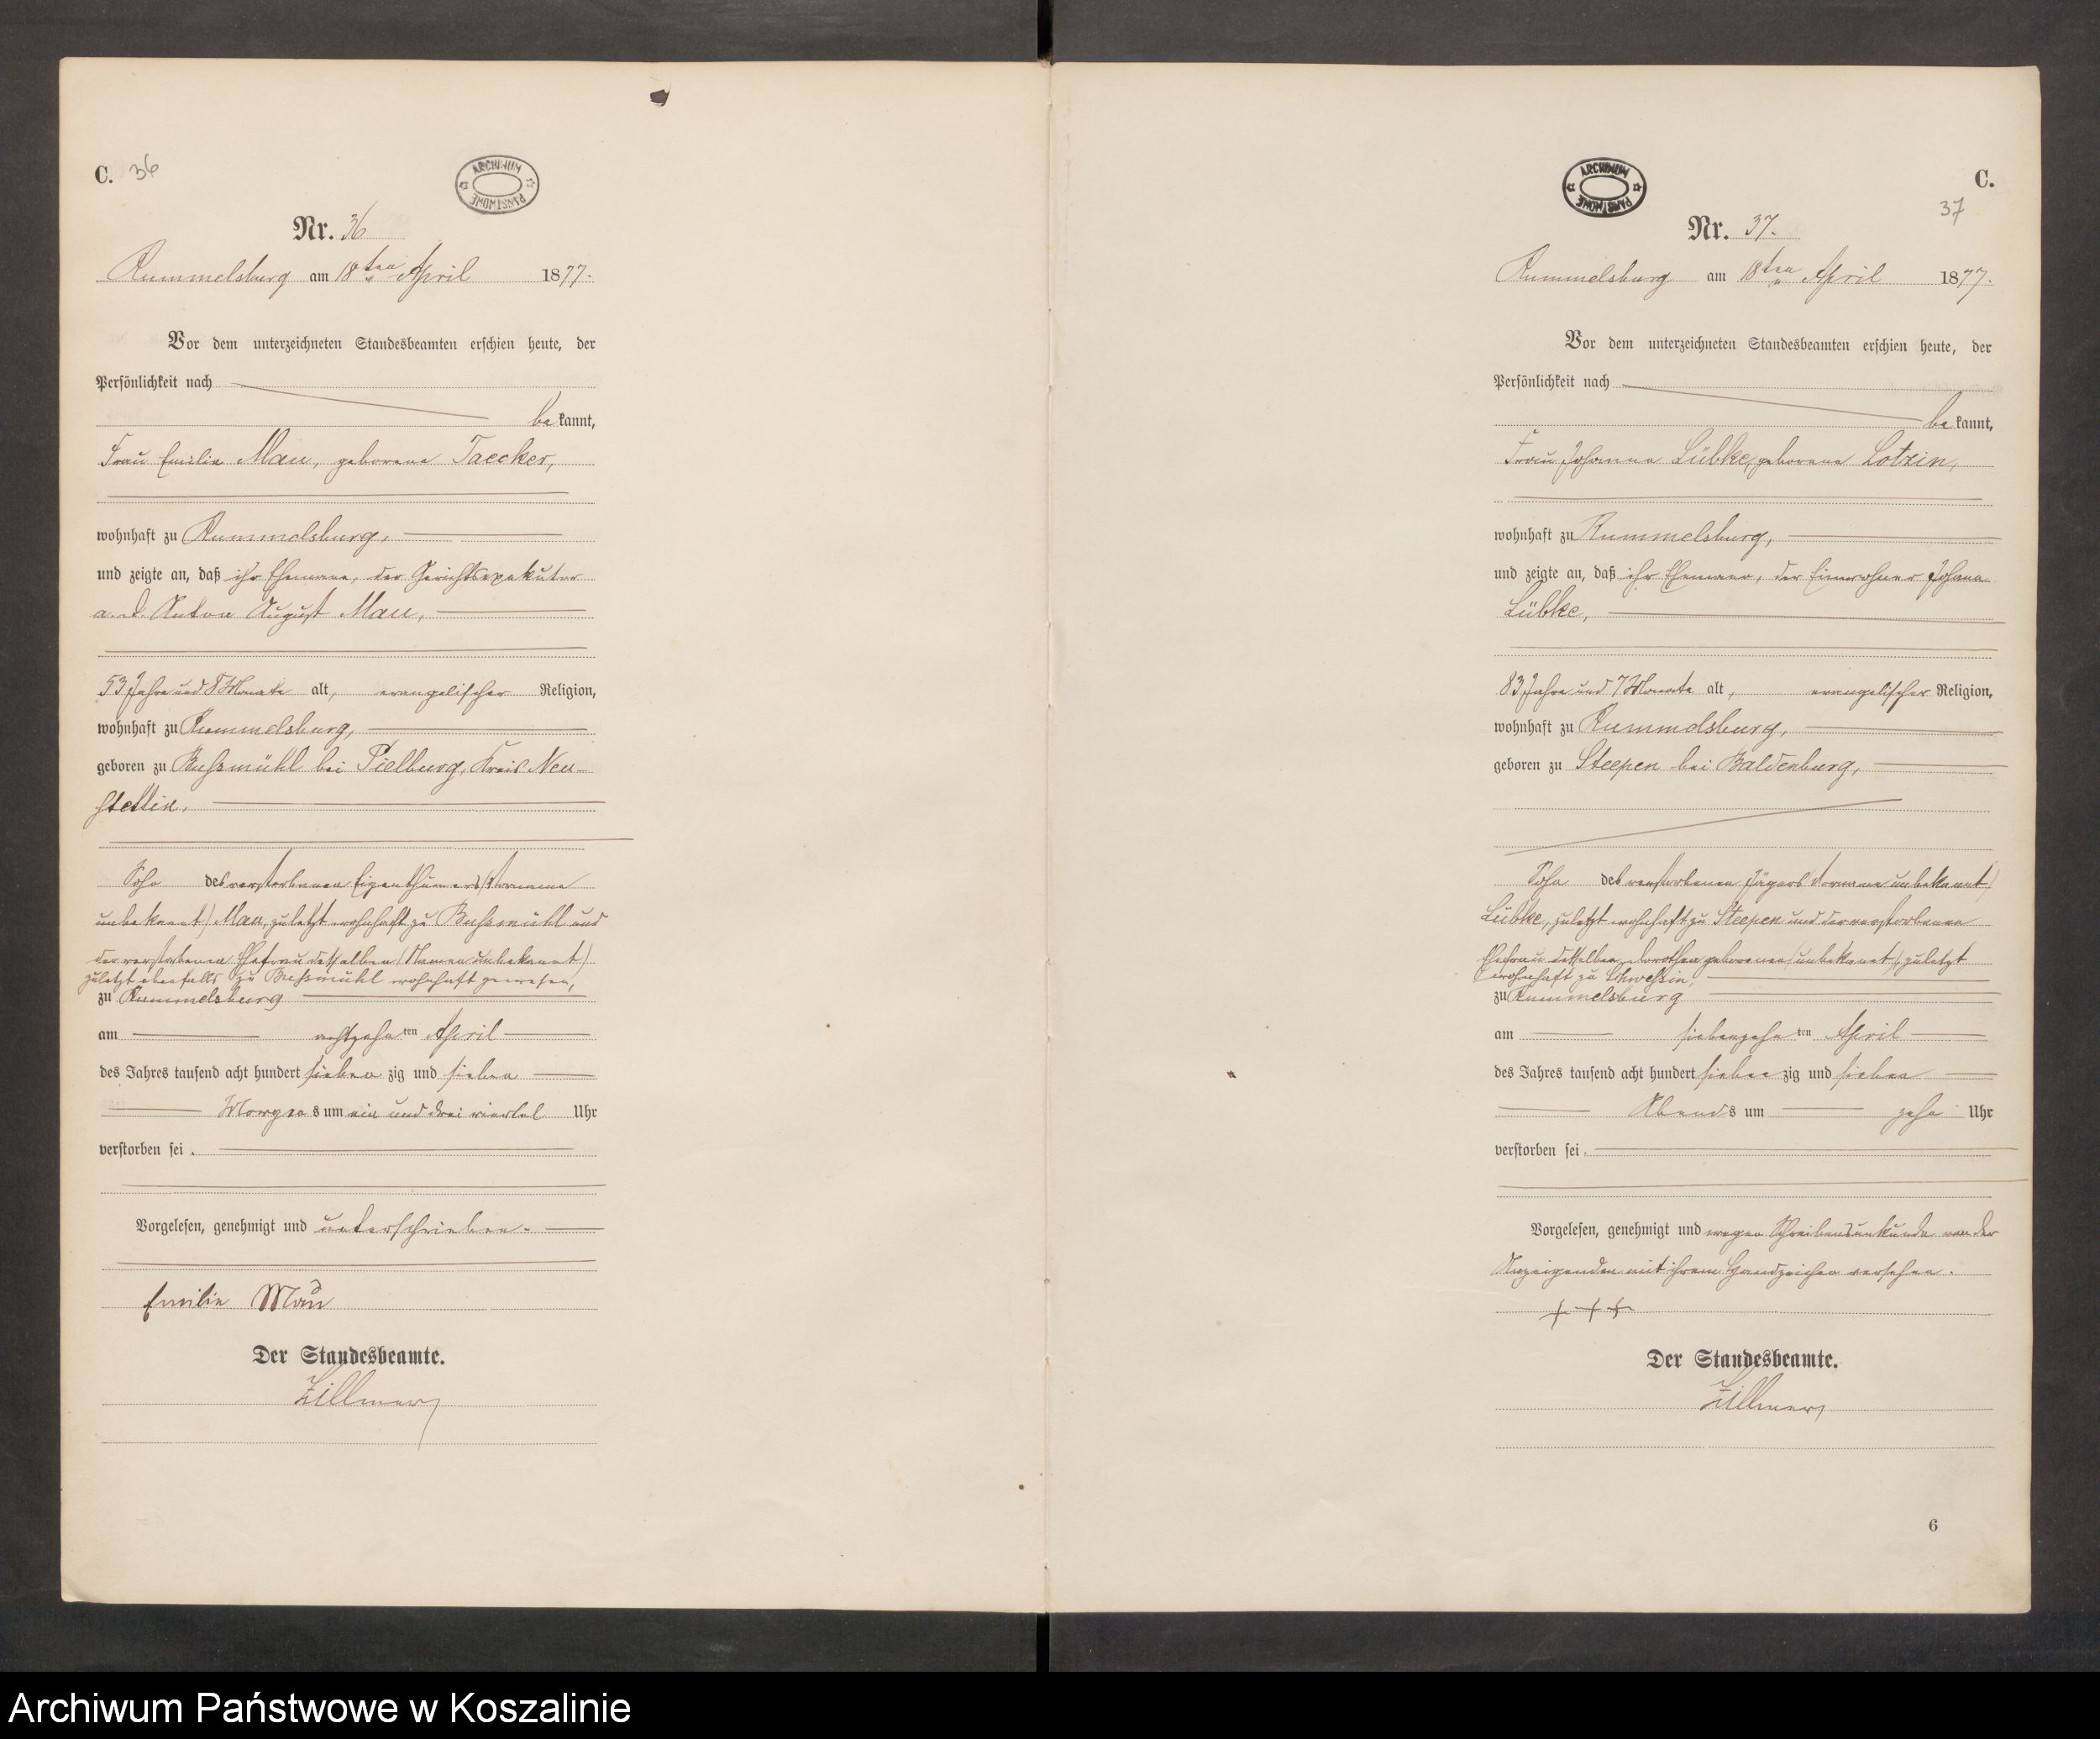 C. 36
ARCHIWUM PAŃSTWOWE
Nr. 36
Rummelsburg am 18ten April 1877.
Vor dem unterzeichneten Standesbeamten erschien heute, der
Persönlichkeit nach
bekannt,
Frau Emilie Mau, geborene Taecker,
wohnhaft zu Rummelsburg,
und zeigte an, daß ihr Ehemann, der Gerichtsexekutor
a. D. Anton August Mau,
53 Jahre und 8 Monate alt, evangelischer Religion,
wohnhaft zu Rummelsburg,
geboren zu Bussmühl bei Pielburg, Kreis Neu-
stettin,
Sohn des verstorbenen Eigenthümers (Vorname
unbekannt) Mau, zuletzt wohnhaft zu Bussmühl und
der verstorbenen Ehefrau desselben (Namen unbekannt)
zuletzt ebenfalls zu Bussmühl wohnhaft gewesen,
zu Rummelsburg
am achtzehnten April
des Jahres tausend acht hundert siebenzig und sieben
Morgens um ein und drei viertel Uhr
verstorben sei.
Vorgelesen, genehmigt und unterschrieben.
Emilie Mau
Der Standesbeamte.
Zillmer
ARCHIWUM PAŃSTWOWE
C.
37
Nr. 37.
Rummelsburg am 18ten April 1877.
Vor dem unterzeichneten Standesbeamten erschien heute, der
Persönlichkeit nach
bekannt,
Frau Johanne Lübke, geborene Lotzin,
wohnhaft zu Rummelsburg,
und zeigte an, daß ihr Ehemann, der Einwohner Johann
Lübke,
83 Jahre und 7 Monate alt, evangelischer Religion,
wohnhaft zu Rummelsburg,
geboren zu Steepen bei Baldenburg,
Sohn des verstorbenen Jägers (Vorname unbekannt)
Lübke, zuletzt wohnhaft zu Steepen und der verstorbenen
Ehefrau desselben, Dorothea geborenen (unbekannt), zuletzt
wohnhaft zu Schwessin,
zu Rummelsburg
am siebenzehnten April
des Jahres tausend acht hundert siebenzig und sieben
Abends um zehn Uhr
verstorben sei.
Vorgelesen, genehmigt und wegen Schreibensunkunde von der
Anzeigenden mit ihrem Handzeichen versehen.
+++
Der Standesbeamte.
Zillmer
6
Archiwum Państwowe w Koszalinie